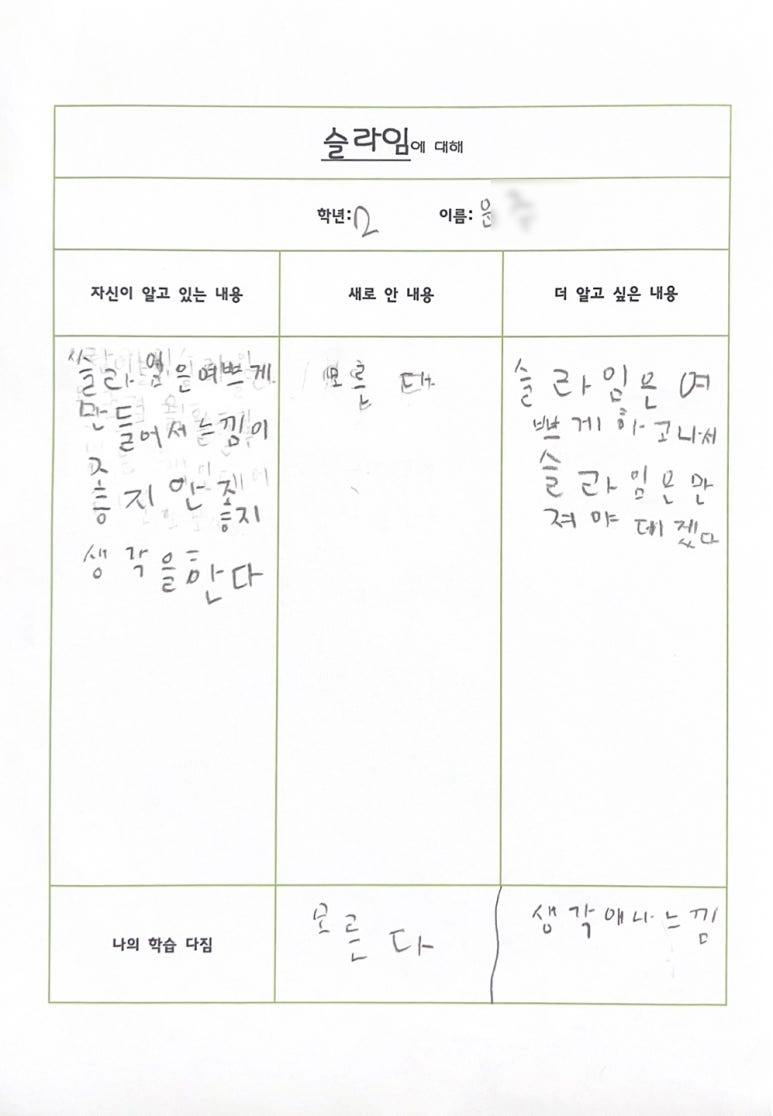 슬라임에 대해
학년: 2 이름: 윤
자신이 알고 있는 내용
새로 안 내용
더 알고 싶은 내용
슬라임은예쁘게
만들어서느낌이
좋지안좋지
생각을한다
모른다
슬라임은여
쁘게하고나서
슬라임은만
져야데겠다
나의 학습 다짐
모른다
생각애나느낌